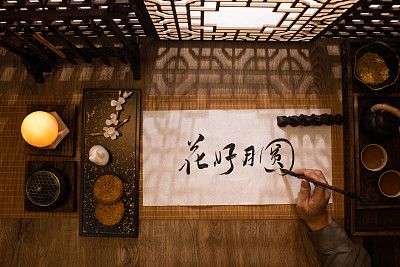 花好月圆